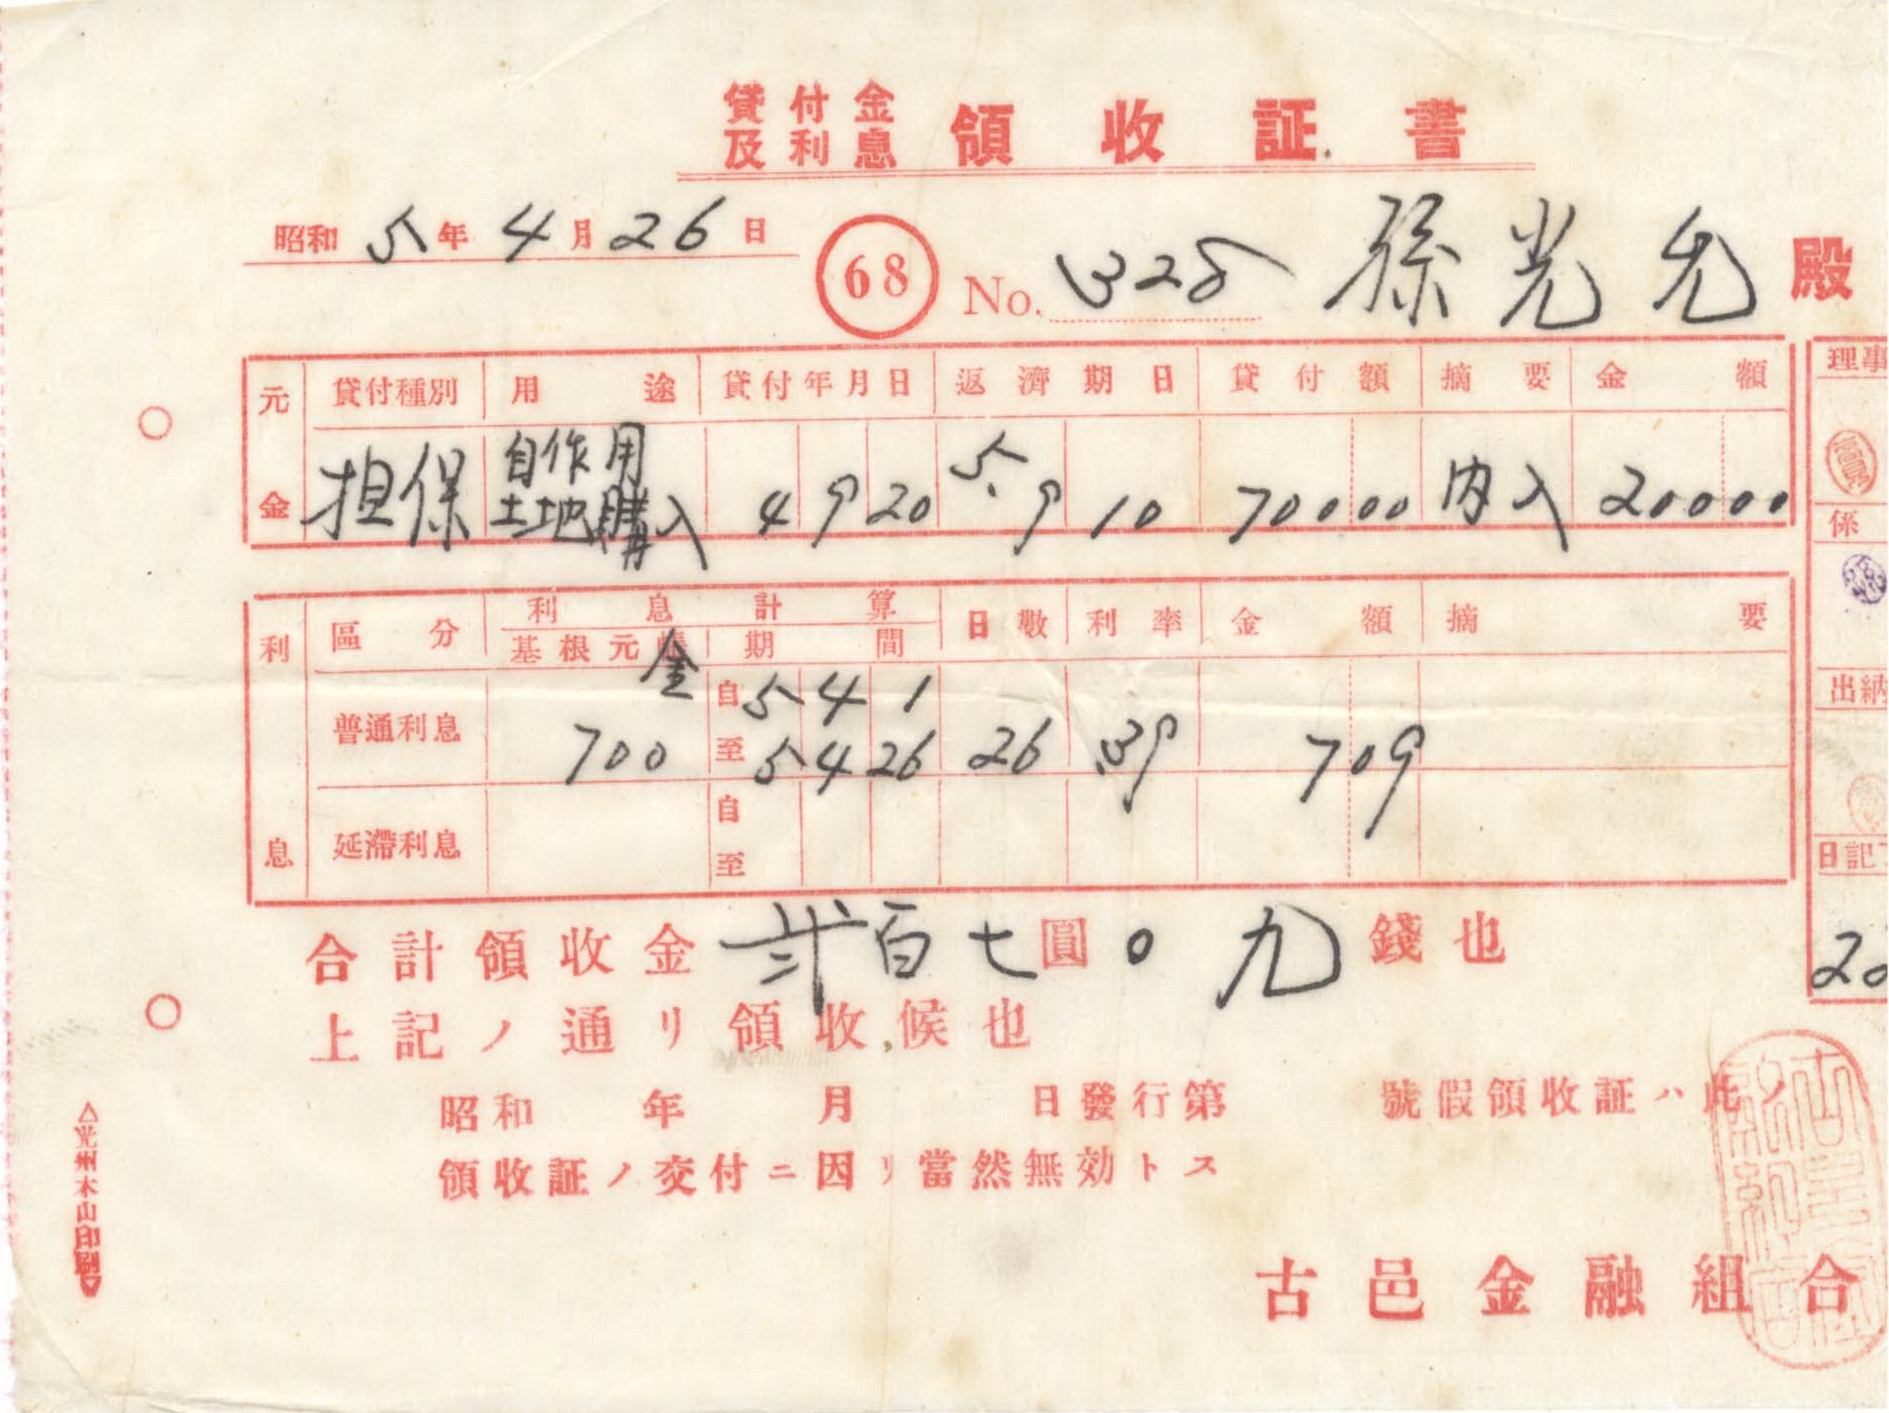 貸付金及利息 領收証書
昭和 5 年 4 月 26 日
68 No. 328 孫光允 殿
元金 貸付種別 用途 貸付年月日 返濟期日 貸付額 摘要 金額
担保 自作用土地購入 4 9 20 5. 9 10 70000 内入 20000
利息 區分 利息計算 日數 利率 金額 摘要
基根元金 期間
普通利息 700 自 5 4 1 至 5 4 26 26 39 709
延滯利息 自 至
合計領收金 弐百七圓 0 九 錢也
上記ノ通リ領收候也
昭和 年 月 日發行第 號假領收証ハ此ノ
領收証ノ交付ニ因リ當然無効トス
古邑金融組合
理事
係
出納
日記
20
△光州木山印刷▽